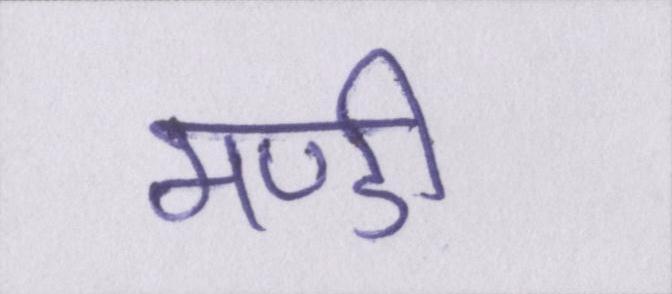 मण्डी